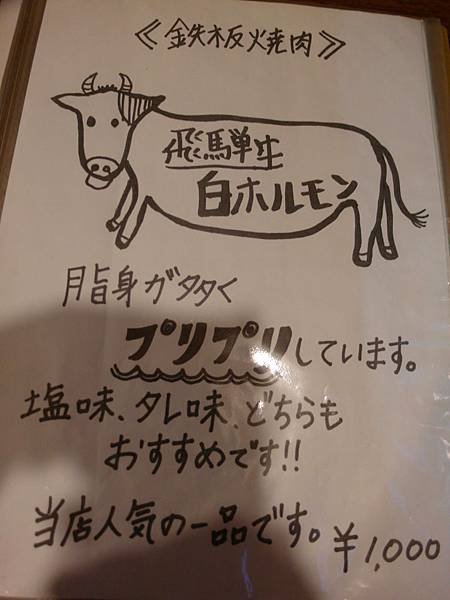 ≪鉄板焼肉≫
飛騨牛
白ホルモン
脂身が多く
プリプリしています。
塩味、タレ味、どちらも
おすすめです!!
当店人気の一品です。
¥1,000